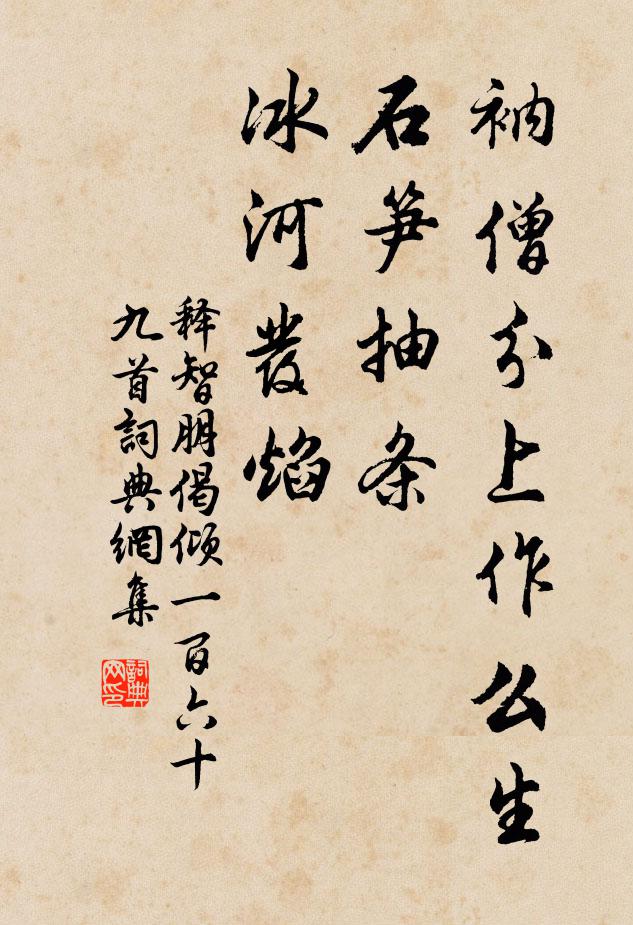 衲僧分上作么生
石笋抽条
冰河發焰
释智朋偈倾一百六十
九首詞典網集
詞典
网印